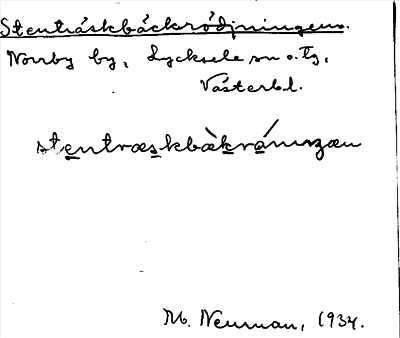 Stenträskbäckrödjningens.
Norrby by, Lycksele sn o. Tg,
Västerbl.
stentræskbæ̀kráningæn
M. Neuman, 1934.